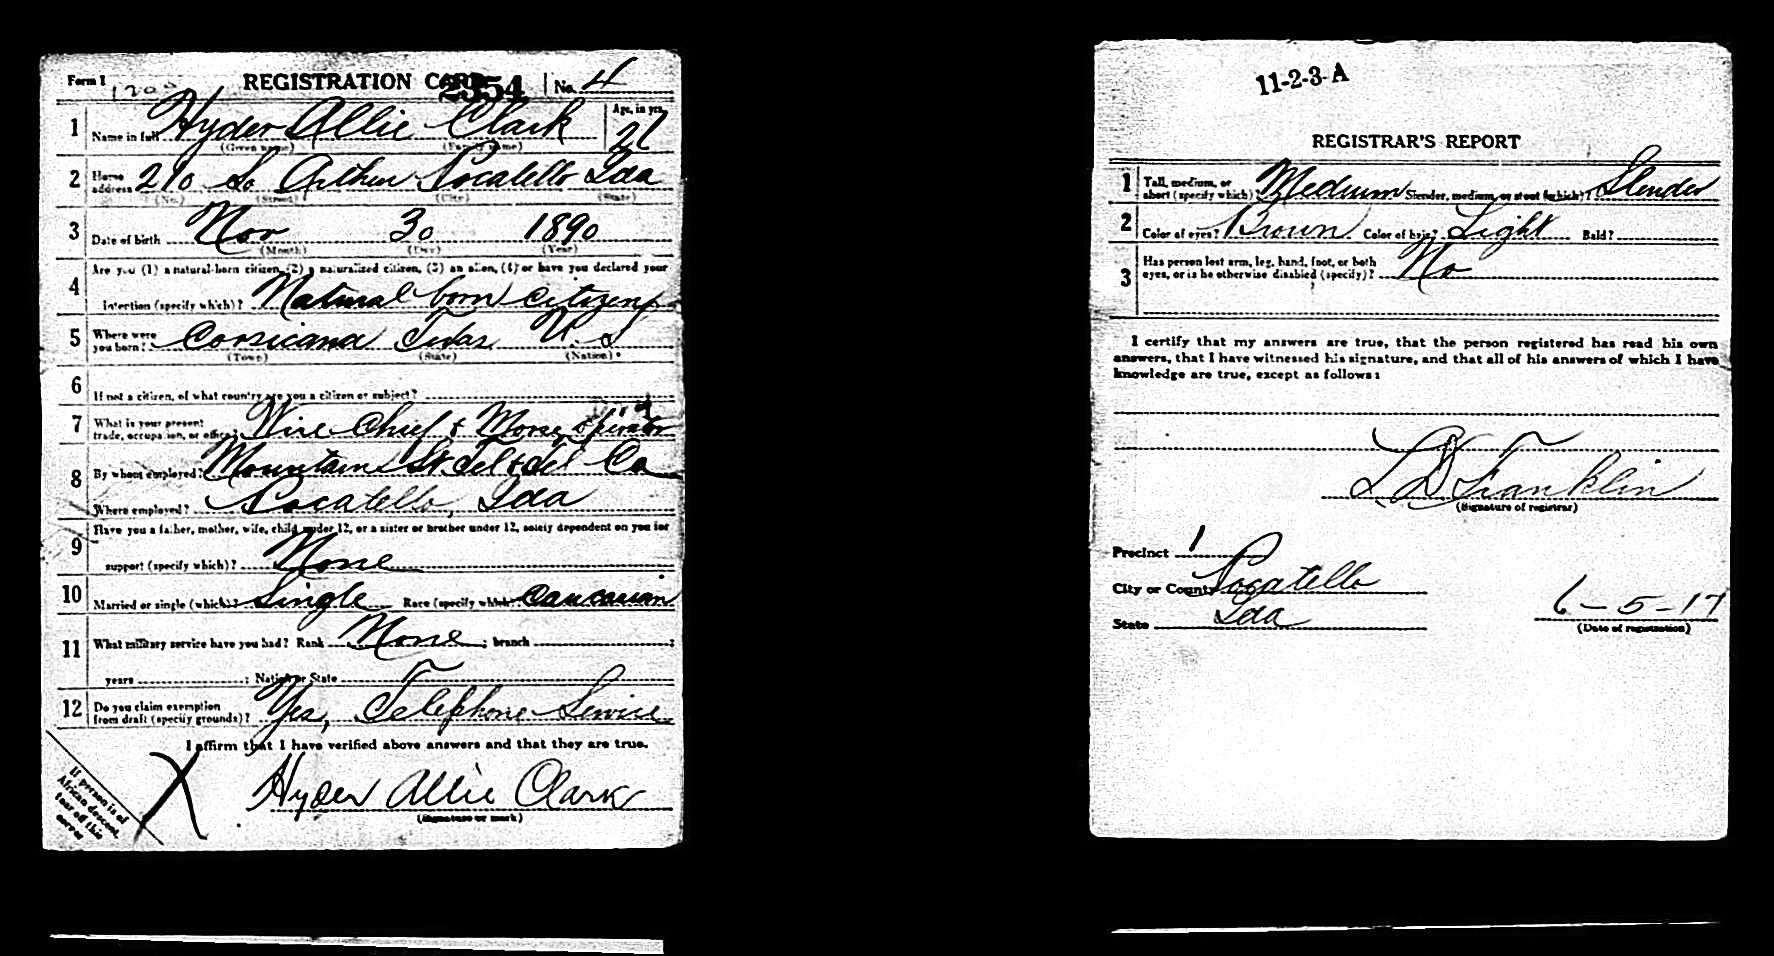 Form 1 REGISTRATION CARD 2354 No. 4
1 Name in full Hyder Allie Clark Age, in yrs.
(Given name) (Family name)
2 Home address 210 So Arthur Pocatello Ida
(No.) (Street) (City) (State)
3 Date of birth Nov 30 1890
(Month) (Day) (Year)
4 Are you (1) a natural-born citizen, (2) a naturalized citizen, (3) an alien, (4) or have you declared your
intention (specify which)? Natural born citizen
5 Where were you born? Corsicana Texas U.S
(Town) (State) (Nation)
6 If not a citizen, of what country are you a citizen or subject?
7 What is your present trade, occupation, or office? Wire Chief & Morse operator
8 By whom employed? Mountain St. Tel & Tel Co
Where employed? Pocatello, Ida
9 Have you a father, mother, wife, child under 12, or a sister or brother under 12, solely dependent on you for
support (specify which)? None
10 Married or single (which)? Single Race (specify which)? Caucasian
11 What military service have you had? Rank None ; branch ;
years ; Nation or State
12 Do you claim exemption from draft (specify grounds)? Yes, Telephone Service
I affirm that I have verified above answers and that they are true.
Hyder Allie Clark
(Signature or mark)
If person is of
African descent,
tear off this
corner
11-2-3-A
REGISTRAR'S REPORT
1 Tall, medium, or short (specify which)? Medium Slender, medium, or stout (which)? Slender
2 Color of eyes? Brown Color of hair? Light Bald?
3 Has person lost arm, leg, hand, foot, or both
eyes, or is he otherwise disabled (specify)? No
I certify that my answers are true, that the person registered has read his own
answers, that I have witnessed his signature, and that all of his answers of which I have
knowledge are true, except as follows:
L D Franklin
(Signature of registrar)
Precinct 1
City or County Pocatello
State Ida
6-5-17
(Date of registration)